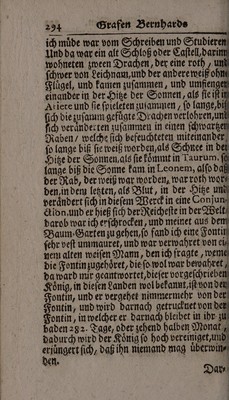 294 Grafen Bernhards
ich müde war vom Schreiben und Studieren
Und da war ein alt Schloß oder Castell, darinn
wohneten zween Drachen, der eine roth, und
schwer von Leichnam, und der andere weiß ohne
Flügel, und kamen zusammen, und umfiengen
einander in der Hitz der Sonnen, als sie ist in
Ariete und sie spieleten zusammen, so lange, biß
sich die zusamm gefügte Drachen verlohren, und
sich veränderten zusammen in einen schwartzen
Raben/ welche sich befeuchteten miteinander,
so lange biß sie weiß worden, als Schnee in der
Hitze der Sonnen, als sie kömmt in Taurum, so
lange biß die Sonne kam in Leonem, also daß
der Rab, der weiß war worden, war roth wor-
den, in dem letzten, als Blut, in der Hitze und
verändert sich in diesem Werck in eine Conjun-
ction, und er hieß sich der Reichste in der Welt,
darob war ich erschrocken, und meinet aus dem
Baum-Garten zu gehen, so fand ich eine Fontin
sehr vest ummauret, und war verwahret von ei-
nem alten weisen Mann, den ich fragte, weme
die Fontin zugehöret, die so wol war bewahret,
da ward mir geantwortet, dieser vorgeschrieben
König, in diesen Landen wol bekannt, ist von der
Fontin, und er vergehet nimmermehr von der
Fontin, und wird darnach getrucknet von der
Fontin, in welcher er darnach bleibet in ihr zu
baden 282. Tage, oder zehend halben Monat,
dadurch wird der König so hoch vereiniget, und
erjüngert sich, daß ihn niemand mag überwin-
den.
Dar-